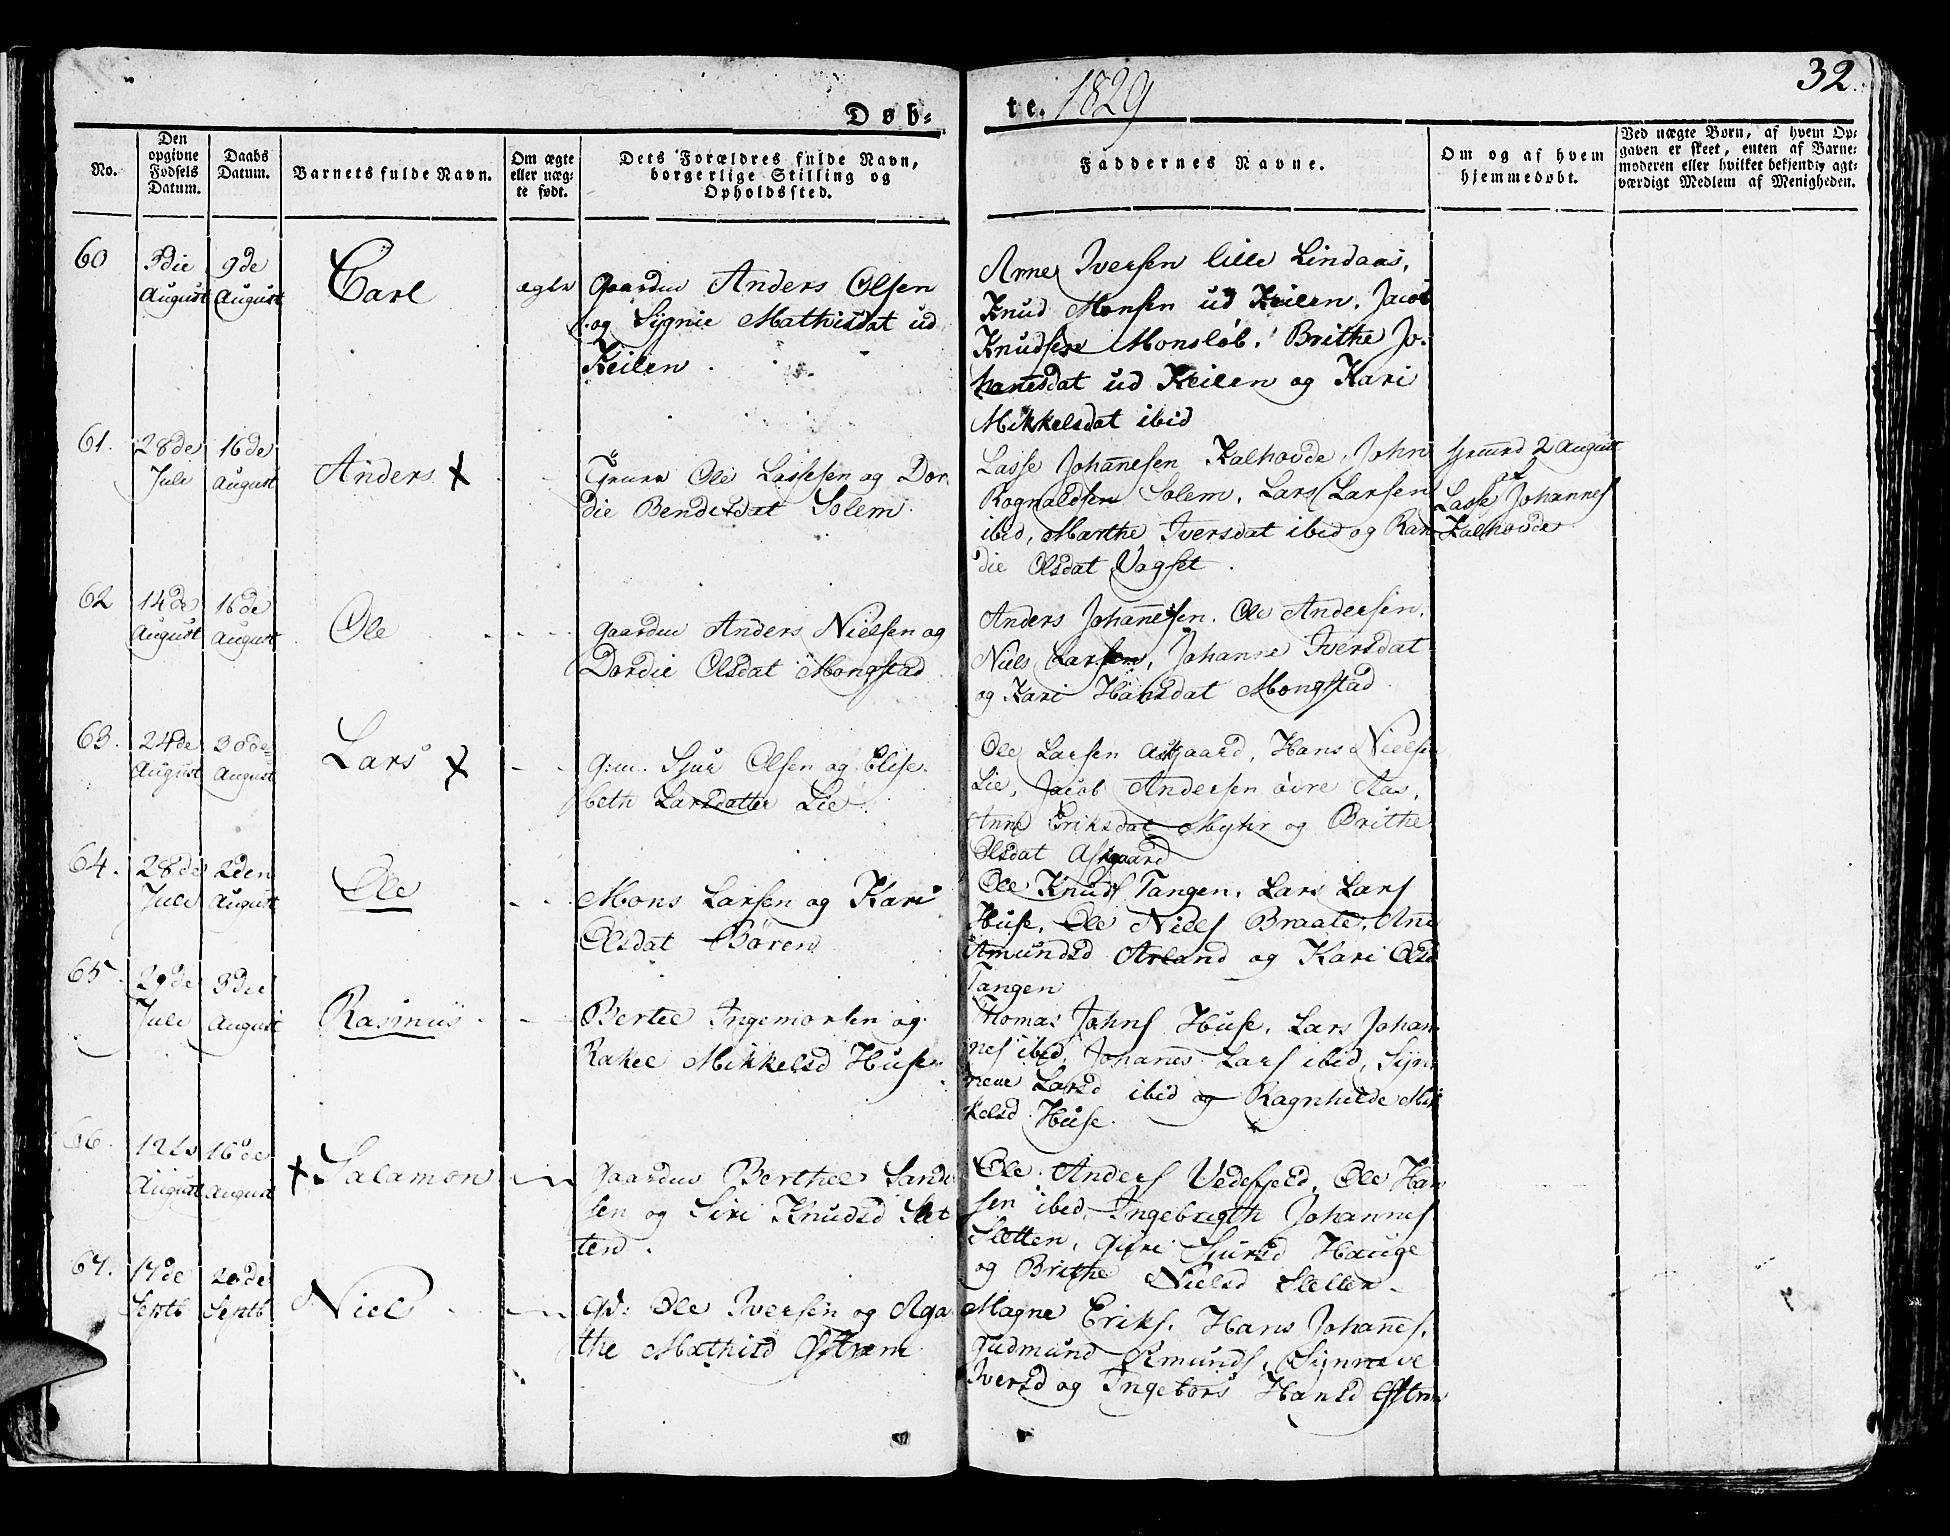 32.
Døb-
te. 1829
No.
Den
opgivne
Fødsels
Datum.
Daabs
Datum.
Barnets fulde Navn.
Om ægte
eller uæg-
te født.
Dets Forældres fulde Navn,
borgerlige Stilling og
Opholdssted.
Faddernes Navne.
Om og af hvem
hjemmedøbt.
Ved uægte Børn, af hvem Op-
gaven er skeet, enten af Barne-
moderen eller hvilket bekjendt agt-
værdigt Medlem af Menigheden.
60
3die
August
9de
August
Carl
ægte
Gaardm Anders Olsen
og Sygnie Mathisdat ud
Keilen.
Arne Iversen lille Lindaas,
Knud Monsen ud Keilen, Jacob
Knudsen Monsløb, Brithe Jo-
hannesdat ud Keilen og Kari
Mikkelsdat ibid
61.
28de
Juli
16de
August
Anders x
- -
Ole Lassesen og Dor
die Bendixdat Solem.
Lasse Johannesen Kalhovde, John
Rognaldsen Solem, Lars Larsen
ibid, Marthe Iversdat ibid og Ran
die Olsdat Vagset.
2 August
af
Lasse Johannes
Kalhovde
62
14de
August
16de
August
Ole
- - -
Gaardm Anders Nielsen og
Dordie Olsdat Mongstad
Anders Johannesen, Ole Andersen,
Niels Larsen, Johanne Iversdat
og Kari Hansdat Mongstad
63.
24de
August
30de
August
Lars x
- -
G:m. Sjur Olsen og Elise-
beth Larsdatter Lie
Ole Larsen Askgaard, Hans Nielsen
Lie, Jacob Andersen øvre Aas,
Anne Eriksdat Myhr og Brithe
Olsdat Askgaard
64.
28de
Juli
2den
August
Ole
- -
Mons Larsen og Kari
Olsdat Børen
Ole Knuds Tangen, Lars Lars
Huse, Ole Niels Braate, Ane
Amundsd Arland og Kari Olsd
Tangen
65.
29de
Juli
3die
August
Rasmus
- -
Bertel Ingemorsen og
Rakel Mikkelsd Huse
Thomas Johns Huse, Lars Johan
nes ibid, Johanes Lars ibid, Syn
neve Larsd ibid og Ragnhilde Mik
kelsd Huse.
66.
12te
August
16de
August
x Salamon
Gaardm Berthel Sande
sen og Siri Knudsd Slet
ten.
Ole Anders Vedefjeld, Ole Han
sen ibid, Ingebrigth Johannes
Sletten, Guri Sjursd Hauge
og Brithe Nielsd Sletten
67.
17de
Septb
20de
Septb
Niels
Gd: Ole Iversen og Aga
the Mathisd Østrem
Magne Eriks, Hans Johannes,
Gudmund Amunds, Synneve
Iversd og Ingebor Hansd Østrem